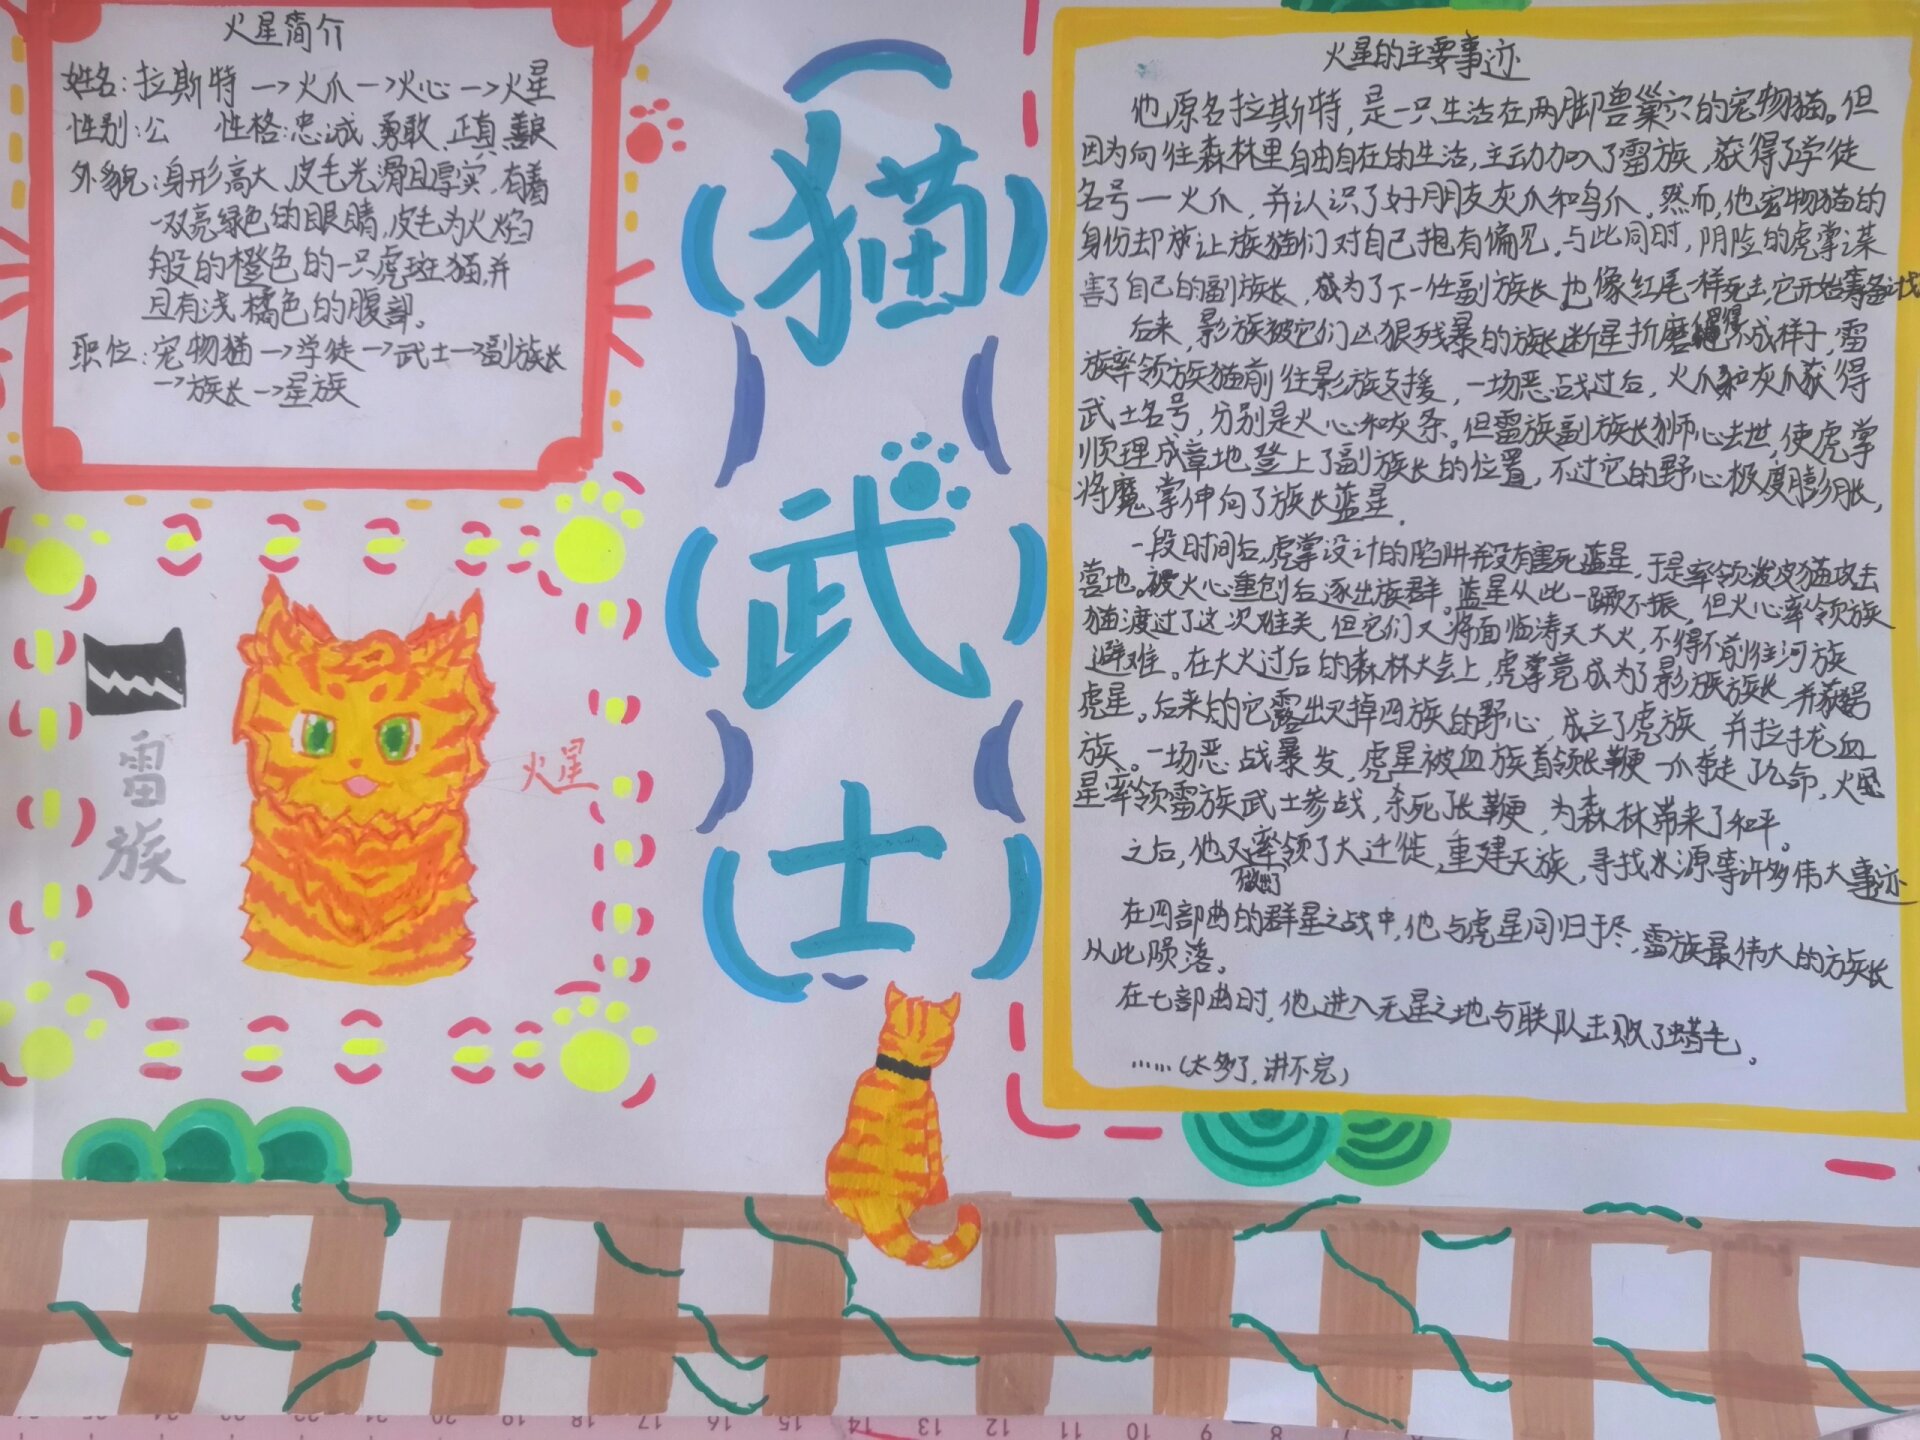 火星简介
姓名：拉斯特→火爪→火心→火星
性别：公 性格：忠诚、勇敢、正直、善良
外貌：身形高大、皮毛光滑且厚实，有着
一双亮绿色的眼睛，皮毛为火焰
般的橙色的一只虎斑猫，并
且有浅橘色的腹部。
职位：宠物猫→学徒→武士→副族长
→族长→星族
雷族
火星
猫
武
士
火星的主要事迹
他原名拉斯特，是一只生活在两脚兽巢穴的宠物猫。但
因为向往森林里自由自在的生活，主动加入了雷族，获得了学徒
名号一火爪，并认识了好朋友灰爪和乌爪。然而，他宠物猫的
身份却放让族猫们对自己抱有偏见。与此同时，阴险的虎掌谋
害了自己的副族长，成为了下一任副族长也像红尾一样死去，它开始筹备计戈
后来，影族被它们凶狠残暴的族长断星折磨得不成样子，雷
族率领族猫前往影族支援，一场恶战过后，火爪和灰爪获得
武士名号，分别是火心和灰条。但雷族副族长狮心去世，使虎掌
顺理成章地登上了副族长的位置，不过它的野心极度膨胀，
将魔掌伸向了族长蓝星。
一段时间后，虎掌设计的陷阱并没有害死蓝星，于是率领泼皮猫攻击
营地。被火心重创后逐出族群。蓝星从此一蹶不振，但火心率领族
猫渡过了这次难关，但它们又将面临涛天大火，不得不前往河族
避难。在大火过后的森林大会上，虎掌竟成为了影族族长，并获号
虎星。后来的它露出灭掉四族的野心，成立了虎族 并拉拢血
族。一场恶战暴发，虎星被血族首领长鞭一爪夺走了九命，火星
星率领雷族武士参战，杀死长鞭，为森林带来了和平。
之后，他又率领了大迁徙，重建天族，寻找水源等许多伟大事迹
做出了
在四部曲的群星之战中，他与虎星同归于尽，雷族最伟大的族长
从此陨落。
在七部曲时，他进入无星之地与联队击败了蜡毛。
……（太多了，讲不完）
17 16 15 14 13 12 11 10 9 8 7